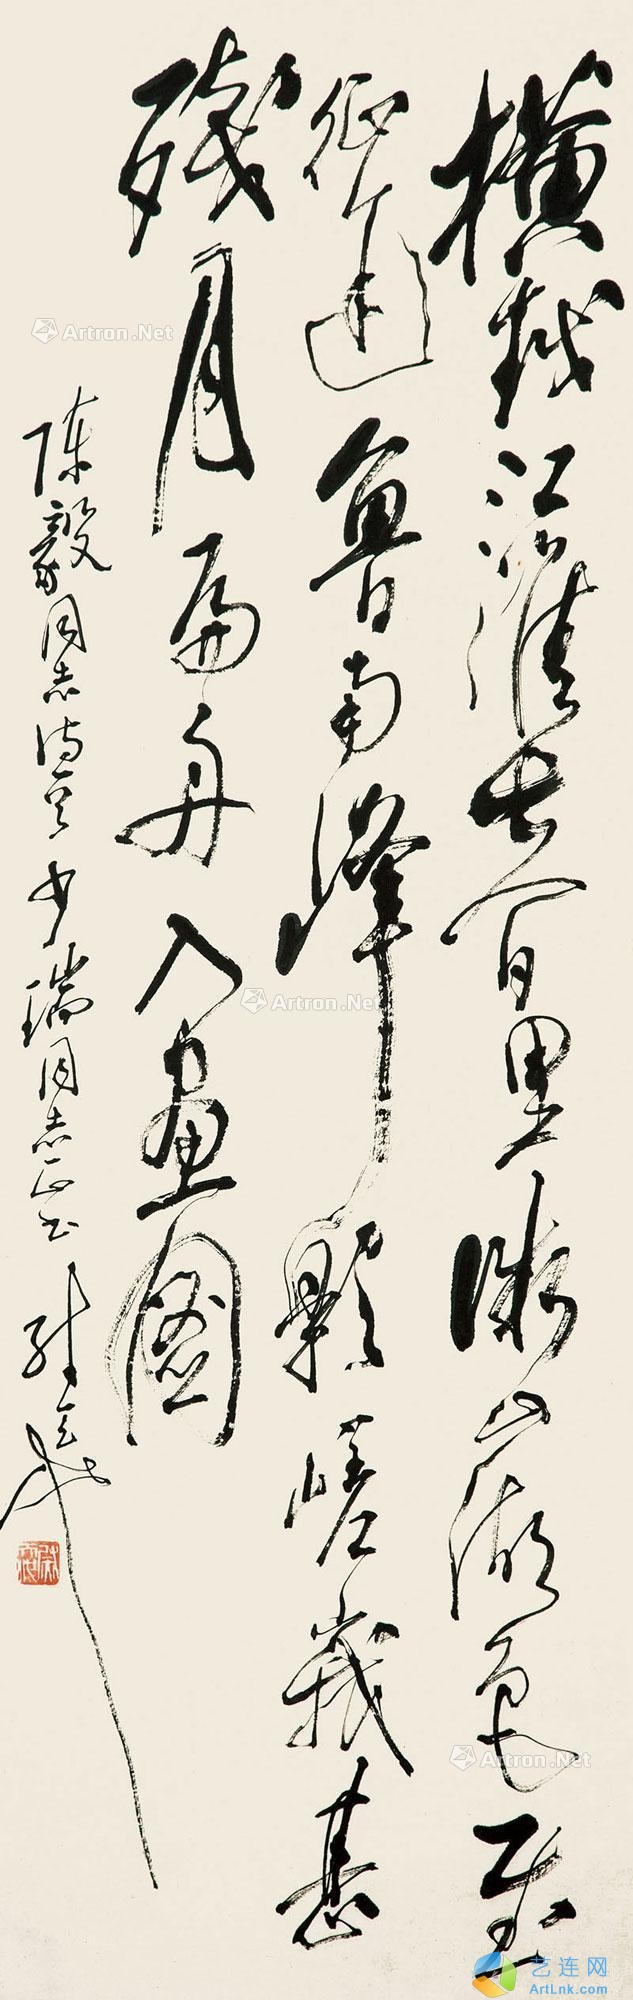 横越江淮七百里微山湖色慰
征途鲁南峰影嵯峨甚
残月扁舟入画图
陈毅同志诗一首 少瑞同志正书
Artron.Net
Artron.Net
Artron.Net
Artron.Net
艺连网
ArtLnk.com